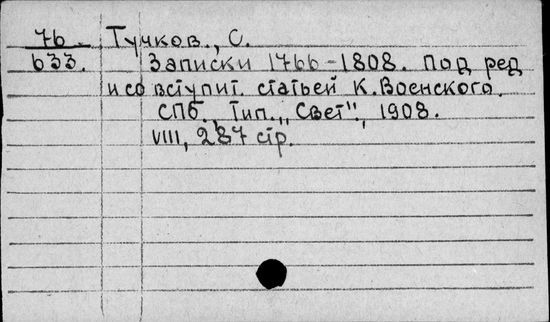 76. Тучков., С.
633. Записки 1766-1808. Под ред
и со вступит. статьей К. Военского.
СПб., Тип. „Свет", 1908.
VIII, 287 стр.